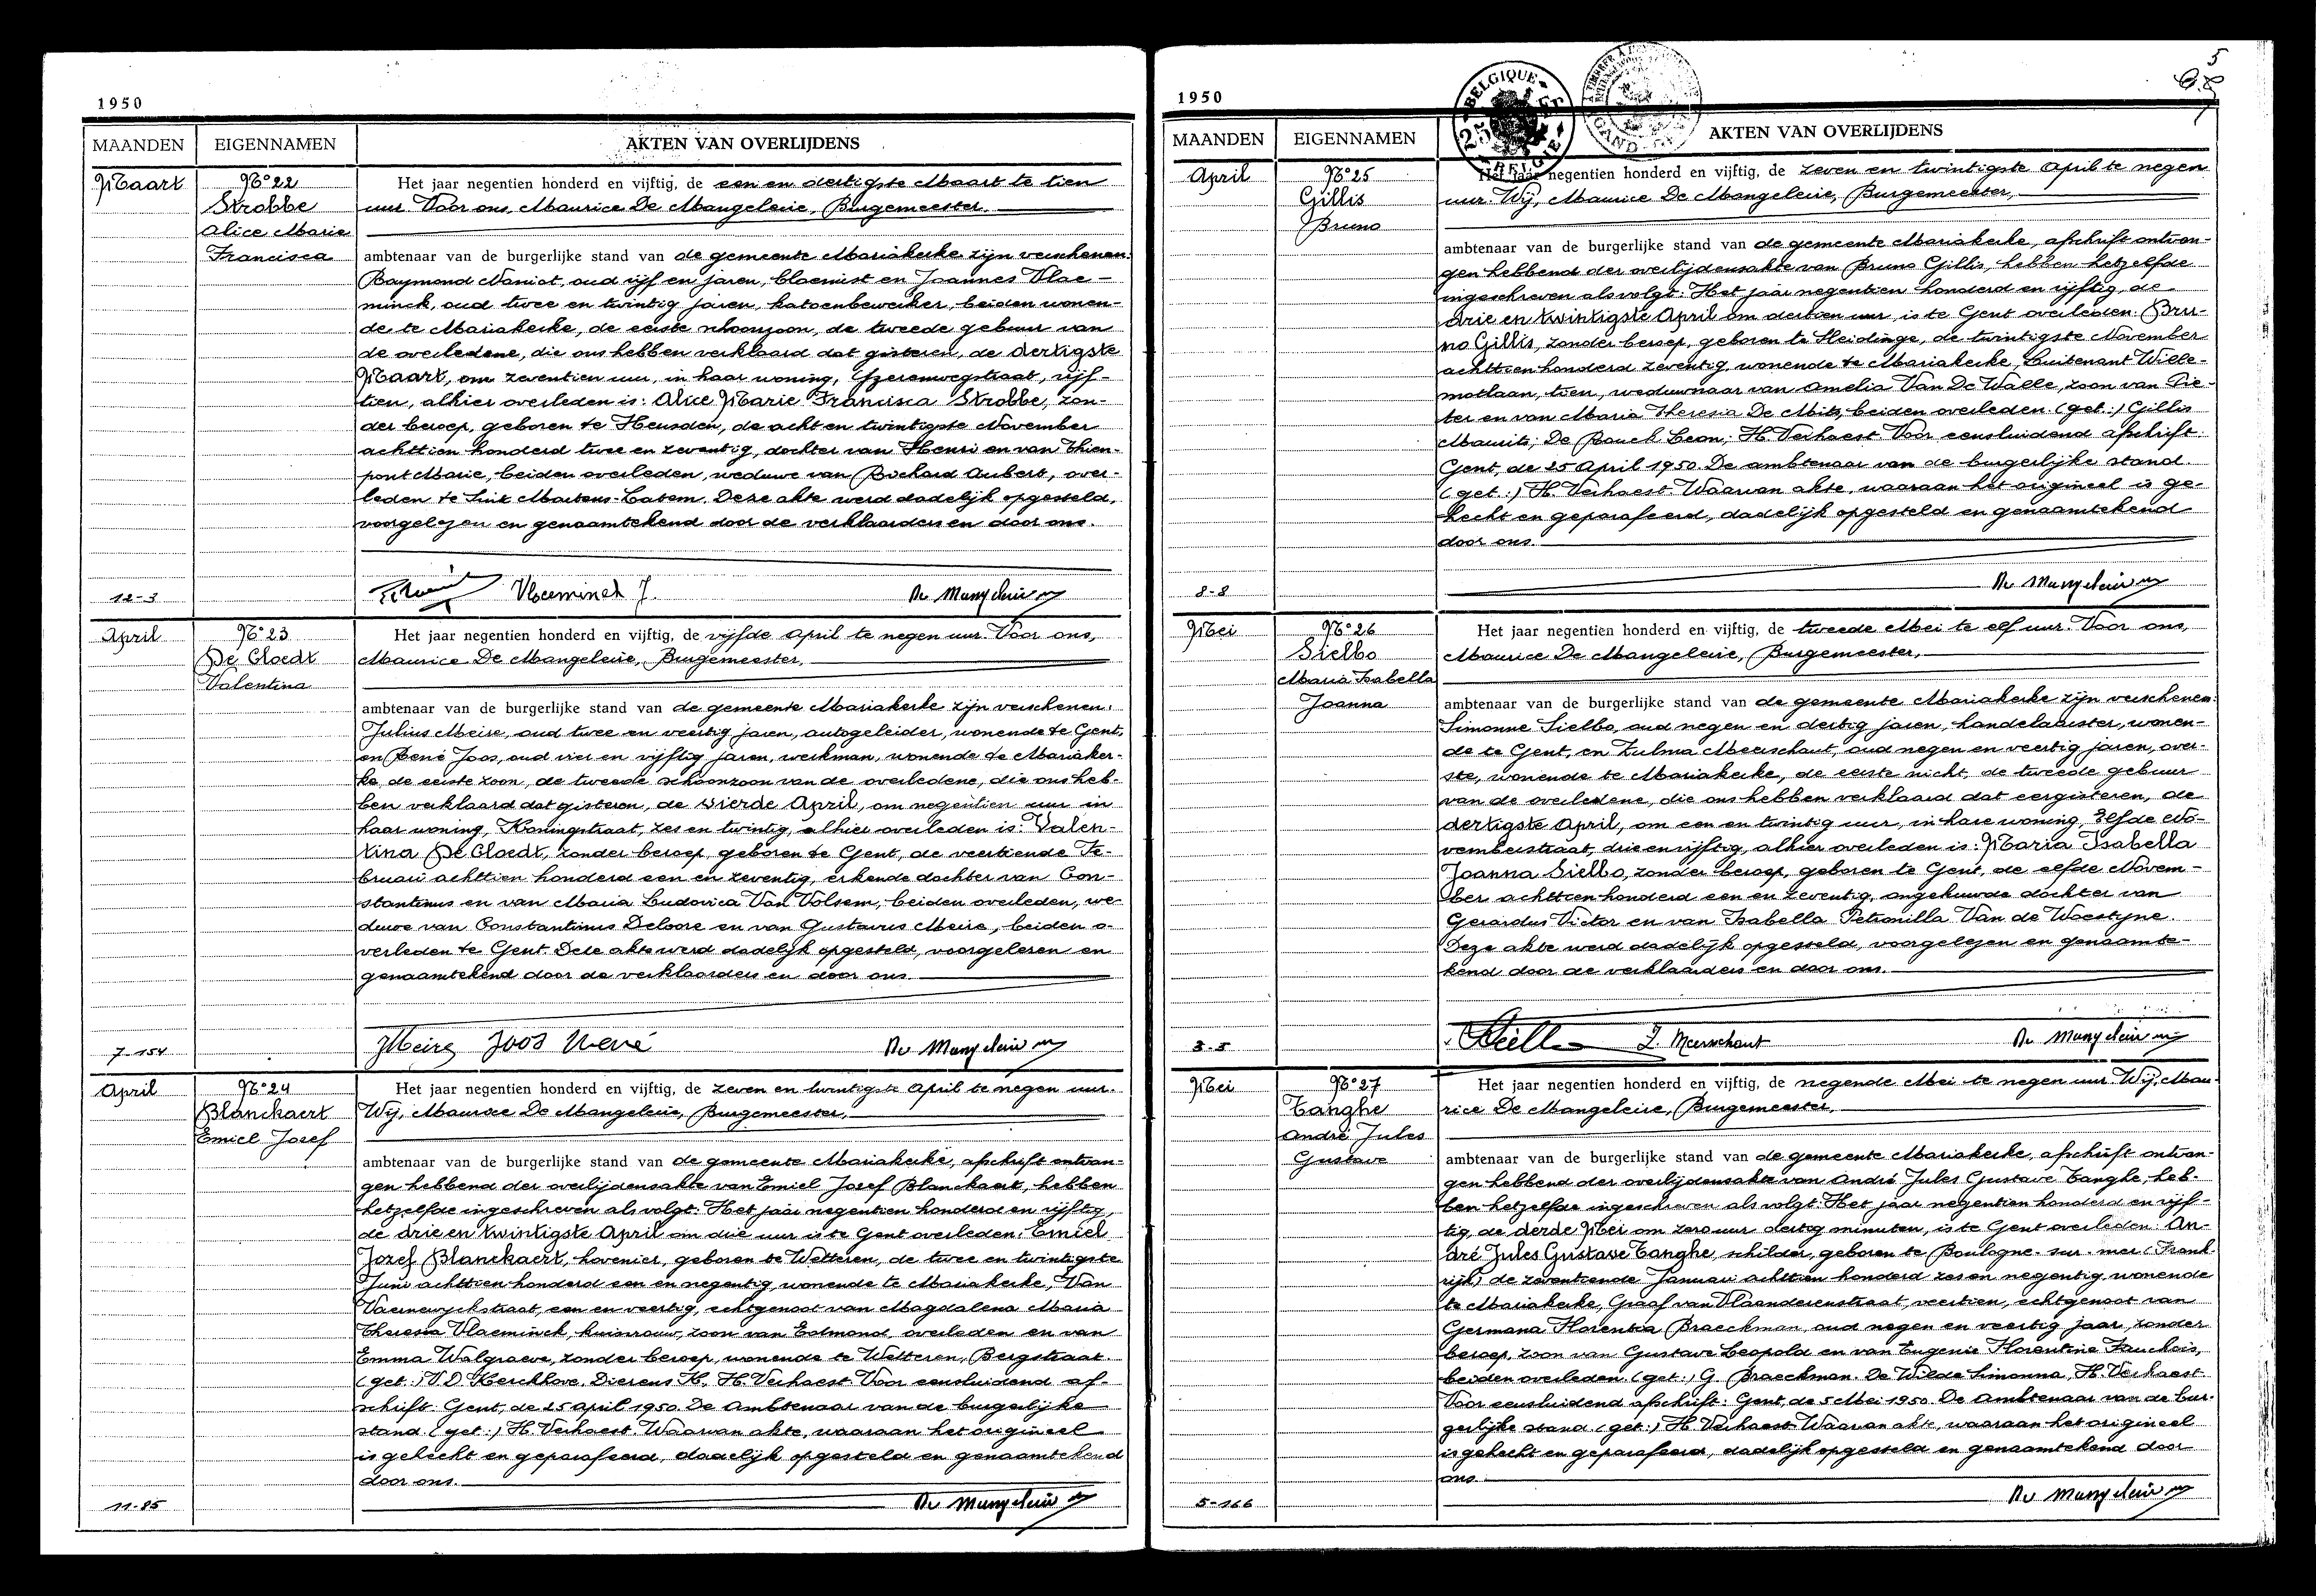 1950
MAANDEN
EIGENNAMEN
AKTEN VAN OVERLIJDENS
Maart
N° 22
Strobbe
Alice Marie
Francisca
Het jaar negentien honderd en vijftig, de een en dertigste Maart te tien
uur. Voor ons, Maurice De Mangeleire, Burgemeester,
ambtenaar van de burgerlijke stand van de gemeente Mariakerke zijn verschenen:
Raymond Naniot, oud vijf en jaren, bloemist en Joannes Vlae-
minck, oud twee en twintig jaren, katoenbewerker, beiden wonen-
de te Mariakerke, de eerste schoonzoon, de tweede gebuur van
de overledene, die ons hebben verklaard dat gisteren, de dertigste
Maart, om zeventien uur, in haar woning, IJzerenwegstraat, vijf-
tien, alhier overleden is: Alice Marie Francisca Strobbe, zon-
der beroep, geboren te Heusden, de acht en twintigste November
achttien honderd twee en zeventig, dochter van Henri en van Thien-
pont Marie, beiden overleden, weduwe van Richard Aubert, over-
leden te Sint Martens-Latem. Deze akte werd dadelijk opgesteld,
voorgelezen en genaamtekend door de verklaarders en door ons.
Vlaeminck J.
De Mangeleire M
12-3
April
N° 23
De Cloedt
Valentina
Het jaar negentien honderd en vijftig, de vijfde April te negen uur. Voor ons,
Maurice De Mangeleire, Burgemeester,
ambtenaar van de burgerlijke stand van de gemeente Mariakerke zijn verschenen:
Julius Meire, oud twee en veertig jaren, autogeleider, wonende te Gent,
en René Joos, oud vier en vijftig jaren, werkman, wonende te Mariaker-
ke de eerste zoon, de tweede schoonzoon van de overledene, die ons heb-
ben verklaard dat gisteren, de vierde April, om negentien uur in
haar woning, Koningstraat, zes en twintig, alhier overleden is: Valen-
tina De Cloedt, zonder beroep, geboren te Gent, de veertiende Fe-
bruari achttien honderd een en zeventig, erkende dochter van Con-
stantinus en van Maria Ludovica Van Volsem, beiden overleden, we-
duwe van Constantinus Deloore en van Gustavus Meire, beiden o-
verleden te Gent. Deze akte werd dadelijk opgesteld, voorgelezen en
genaamtekend door de verklaarders en door ons.
JMeire Joos René
De Mangeleire M
7-154
April
N° 24
Blanckaert
Emiel Jozef
Het jaar negentien honderd en vijftig, de zeven en twintigste April te negen uur.
Wij, Maurice De Mangeleire, Burgemeester,
ambtenaar van de burgerlijke stand van de gemeente Mariakerke, afschrift ontvan-
gen hebbend der overlijdensakte van Emiel Jozef Blanckaert, hebben
hetzelfde ingeschreven als volgt: Het jaar negentien honderd en vijftig,
de drie en twintigste April om drie uur is te Gent overleden: Emiel
Jozef Blanckaert, hovenier, geboren te Wetteren, de twee en twintigste
Juni achttien honderd een en negentig, wonende te Mariakerke, Van
Vaernewyckstraat, een en veertig, echtgenoot van Magdalena Maria
Theresia Vlaeminck, huisvrouw, zoon van Edmond, overleden en van
Emma Walgraeve, zonder beroep, wonende te Wetteren, Bergstraat.
(get.:) V.D. Kerckhove, Dierens H., H. Verhaest. Voor eensluidend af-
schrift. Gent, de 25 April 1950. De Ambtenaar van de burgerlijke
stand (get.:) H. Verhaest. Waarvan akte, waaraan het origineel
is gehecht en geparafeerd, dadelijk opgesteld en genaamtekend
door ons.
De Mangeleire M
11-85
5
1950
BELGIQUE
BELGIE
GAND
MAANDEN
EIGENNAMEN
AKTEN VAN OVERLIJDENS
April
N° 25
Gillis
Bruno
Het jaar negentien honderd en vijftig, de zeven en twintigste April te negen
uur. Wij, Maurice De Mangeleire, Burgemeester,
ambtenaar van de burgerlijke stand van de gemeente Mariakerke, afschrift ontvan-
gen hebbend der overlijdensakte van Bruno Gillis, hebben hetzelfde
ingeschreven als volgt: Het jaar negentien honderd en vijftig, de
drie en twintigste April om dertien uur, is te Gent overleden: Bru-
no Gillis, zonder beroep, geboren te Sleidinge, de twintigste November
achttienhonderd zeventig, wonende te Mariakerke, Luitenant Wille-
motlaan, tien, weduwnaar van Amelia Van De Walle, zoon van Pie-
ter en van Maria Theresia De Mits, beiden overleden. (get.:) Gillis
Maurits; De Bouck Leon; H. Verhaest. Voor eensluidend afschrift:
Gent, de 25 April 1950. De ambtenaar van de burgerlijke stand.
(get.:) H. Verhaest. Waarvan akte, waaraan het origineel is ge-
hecht en geparafeerd, dadelijk opgesteld en genaamtekend
door ons.
De Mangeleire M
8-8
Mei
N° 26
Sielbo
Maria Isabella
Joanna
Het jaar negentien honderd en vijftig, de tweede Mei te elf uur. Voor ons,
Maurice De Mangeleire, Burgemeester,
ambtenaar van de burgerlijke stand van de gemeente Mariakerke zijn verschenen:
Simonne Sielbo, oud negen en dertig jaren, handelaarster, wonen-
de te Gent, en Zulma Meerschaut, oud negen en veertig jaren, over-
ste, wonende te Mariakerke, de eerste nicht, de tweede gebuur
van de overledene, die ons hebben verklaard dat eergisteren, de
dertigste April, om een en twintig uur, in hare woning, Elfde No-
vemberstraat, drie en vijftig, alhier overleden is: Maria Isabella
Joanna Sielbo, zonder beroep, geboren te Gent, de elfde Novem-
ber achttien honderd een en zeventig, ongehuwde dochter van
Gerardus Victor en van Isabella Petronilla Van de Woestyne.
Deze akte werd dadelijk opgesteld, voorgelezen en genaamte-
kend door de verklaarders en door ons.
Z. Meerschaut
De Mangeleire M
3-5
Mei
N° 27
Tanghe
André Jules
Gustave
Het jaar negentien honderd en vijftig, de negende Mei te negen uur. Wij, Mau-
rice De Mangeleire, Burgemeester,
ambtenaar van de burgerlijke stand van de gemeente Mariakerke, afschrift ontvan-
gen hebbend der overlijdensakte van André Jules Gustave Tanghe, heb-
ben hetzelfde ingeschreven als volgt: Het jaar negentien honderd en vijf-
tig, de derde Mei om zero uur dertig minuten, is te Gent overleden: An-
dré Jules Gustave Tanghe, schilder, geboren te Boulogne-sur-mer (Frank-
rijk) de zeventiende Januari achttien honderd zes en negentig, wonende
te Mariakerke, Graaf van Vlaanderenstraat veertien, echtgenoot van
Germana Florentia Braeckman, oud negen en veertig jaar, zonder
beroep, zoon van Gustave Leopold en van Eugenie Florentine Fauchois,
beiden overleden. (get.:) G. Braeckman. De Wilde Simonna, H. Verhaest.
Voor eensluidend afschrift: Gent, de 5 Mei 1950. De Ambtenaar van de bur-
gerlijke stand (get.:) H. Verhaest. Waarvan akte, waaraan het origineel
is gehecht en geparafeerd, dadelijk opgesteld en genaamtekend door
ons.
De Mangeleire M
5-166